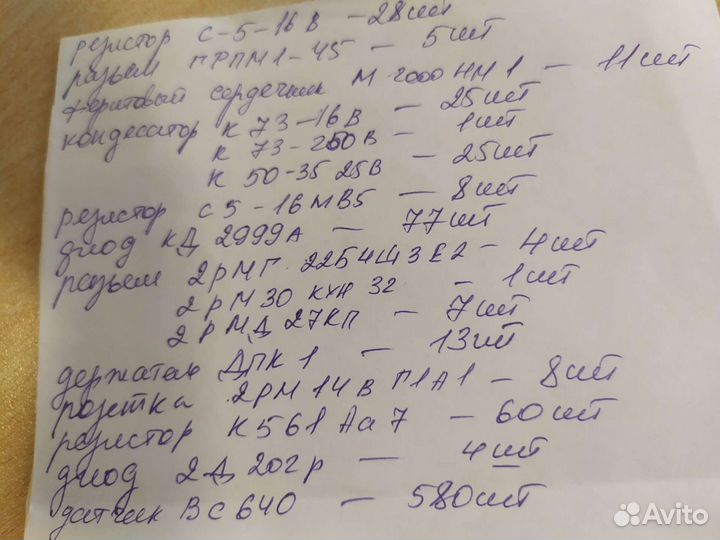 резистор С-5-16В - 28шт
разъем ГРПМ1-45 - 5шт
ферритовый сердечник М2000НМ1 - 11шт
кондесатор К 73-16В - 25шт
К 73-250В - 1шт
К 50-35 25В - 25шт
резистор С5-16МВ5 - 8шт
диод КД 2999А - 77шт
разъем 2РМГ 22Б4Ш3Е2 - 4шт
2РМ30 КУН 32 - 1шт
2РМД 27КП - 7шт
держатель ДПК1 - 13шт
розетка 2РМ14В Г1А1 - 8шт
резистор К561 Ла7 - 60шт
диод 2Д 202р - 4шт
датчик ВС640 - 580шт
Avito